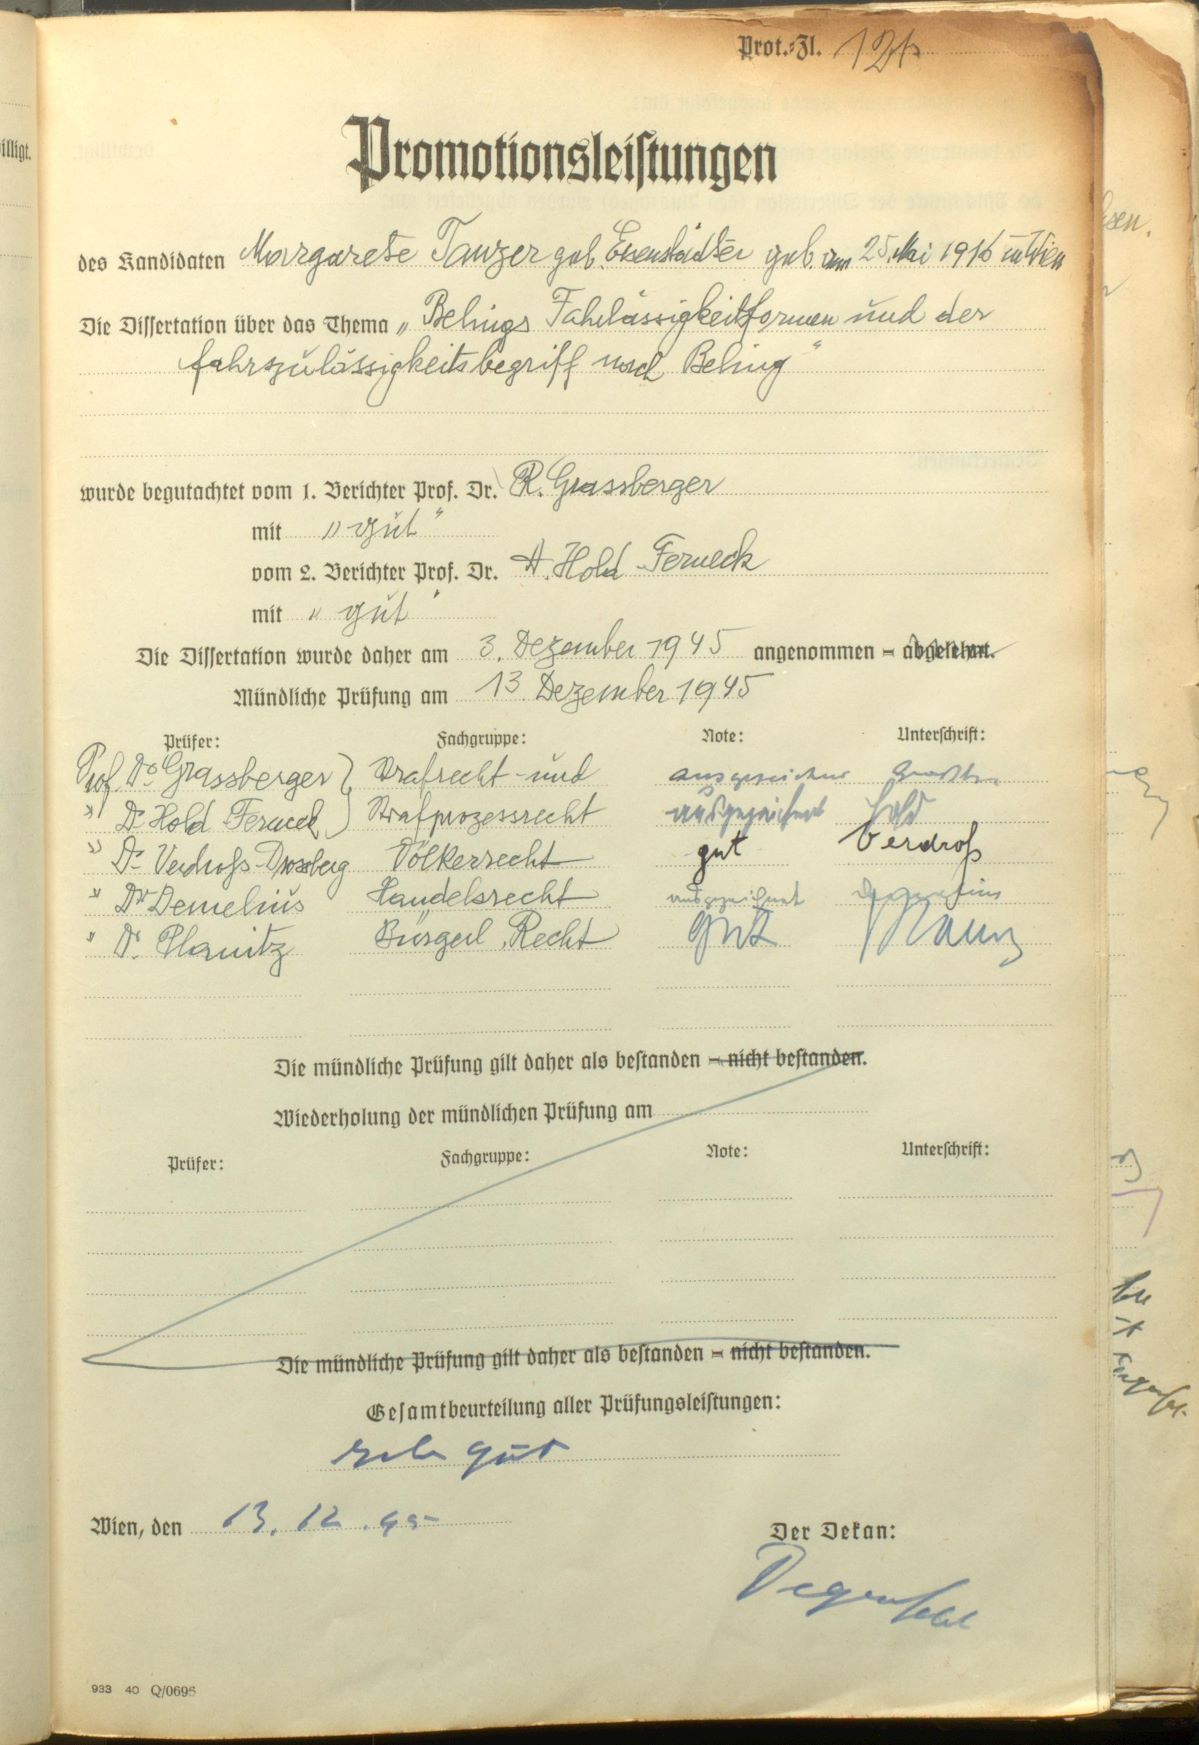 illigt.
Prot.-Zl. 126
Promotionsleistungen
des Kandidaten Margarete Tanzer geb. Eisenstädter geb. am 25. Mai 1916 in Wien
Die Dissertation über das Thema „Belings Fahrlässigkeitsformen und der
fahrszulässigkeitsbegriff nach Beling"
wurde begutachtet vom 1. Berichter Prof. Dr. R. Grassberger
mit „gut"
vom 2. Berichter Prof. Dr. A. Hold Ferneck
mit „gut"
Die Dissertation wurde daher am 3. Dezember 1945 angenommen – abgelehnt.
Mündliche Prüfung am 13 Dezember 1945
Prüfer: Fachgruppe: Note: Unterschrift:
Prof. Dr. Grassberger } Strafrecht - und ausgezeichnet
" Dr. Hold Ferneck } Strafprozessrecht ausgezeichnet Hold
" Dr. Verdroß-Drossberg Völkerrecht gut Verdroß
" Dr. Demelius Handelsrecht ausgezeichnet Demelius
" Dr. Planitz Bürgerl. Recht gut Planitz
Die mündliche Prüfung gilt daher als bestanden – nicht bestanden.
Wiederholung der mündlichen Prüfung am
Prüfer: Fachgruppe: Note: Unterschrift:
Die mündliche Prüfung gilt daher als bestanden – nicht bestanden.
Gesamtbeurteilung aller Prüfungsleistungen:
sehr gut
Wien, den 13. 12. 45
Der Dekan:
Degenfeld
933 40 Q/0696